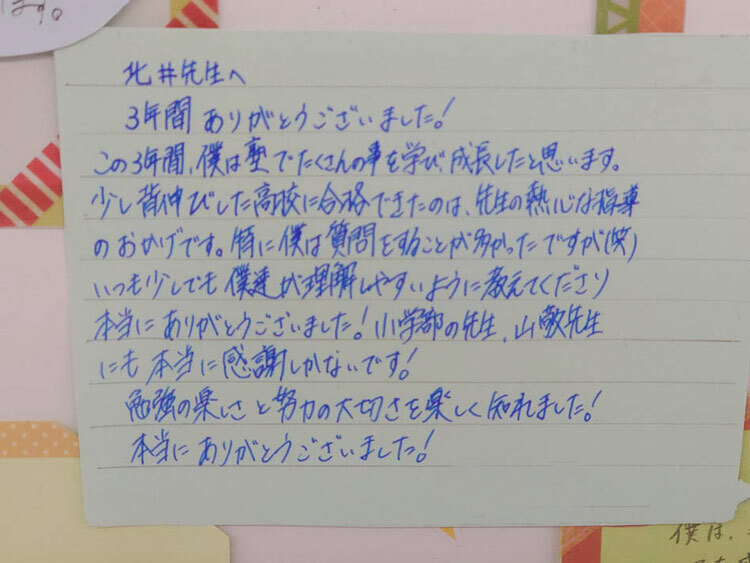 ます。
北井先生へ
3年間ありがとうございました!
この3年間、僕は塾でたくさんの事を学び、成長したと思います。
少し背伸びした高校に合格できたのは、先生の熱心な指導
のおかげです。特に僕は質問をすることが多かったですが(笑)
いつも少しでも僕達が理解しやすいように教えてくださり
本当にありがとうございました!小学部の先生、山敷先生
にも本当に感謝しかないです!
勉強の楽しさと努力の大切さを楽しく知れました!
本当にありがとうございました!
僕は、